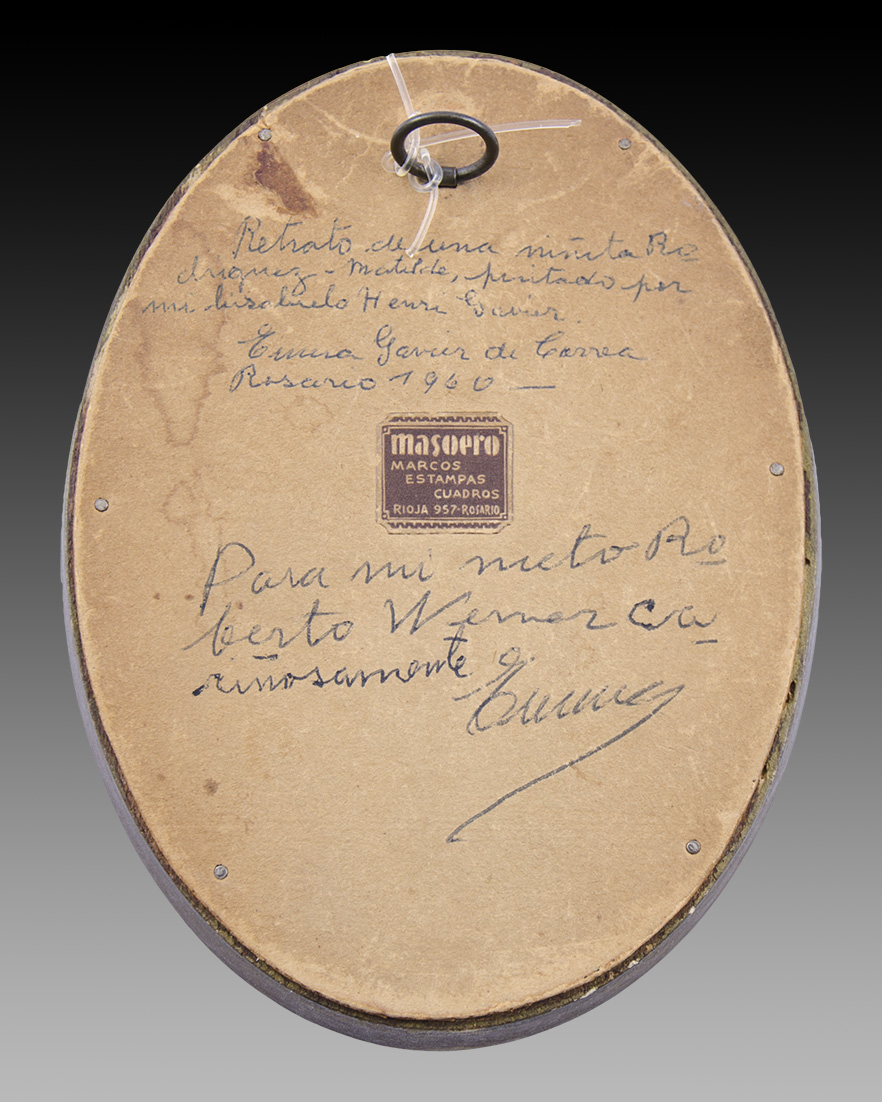 Retrato de una niñita Ro
driguez - Matilde, pintado por
mi bisabuelo Henri Gavier.
Emma Gavier de Correa
Rosario 1960 —
masoero
MARCOS
ESTAMPAS
CUADROS
RIOJA 957-ROSARIO
Para mi nieto Ro
berto Werner ca
riñosamente
Emma